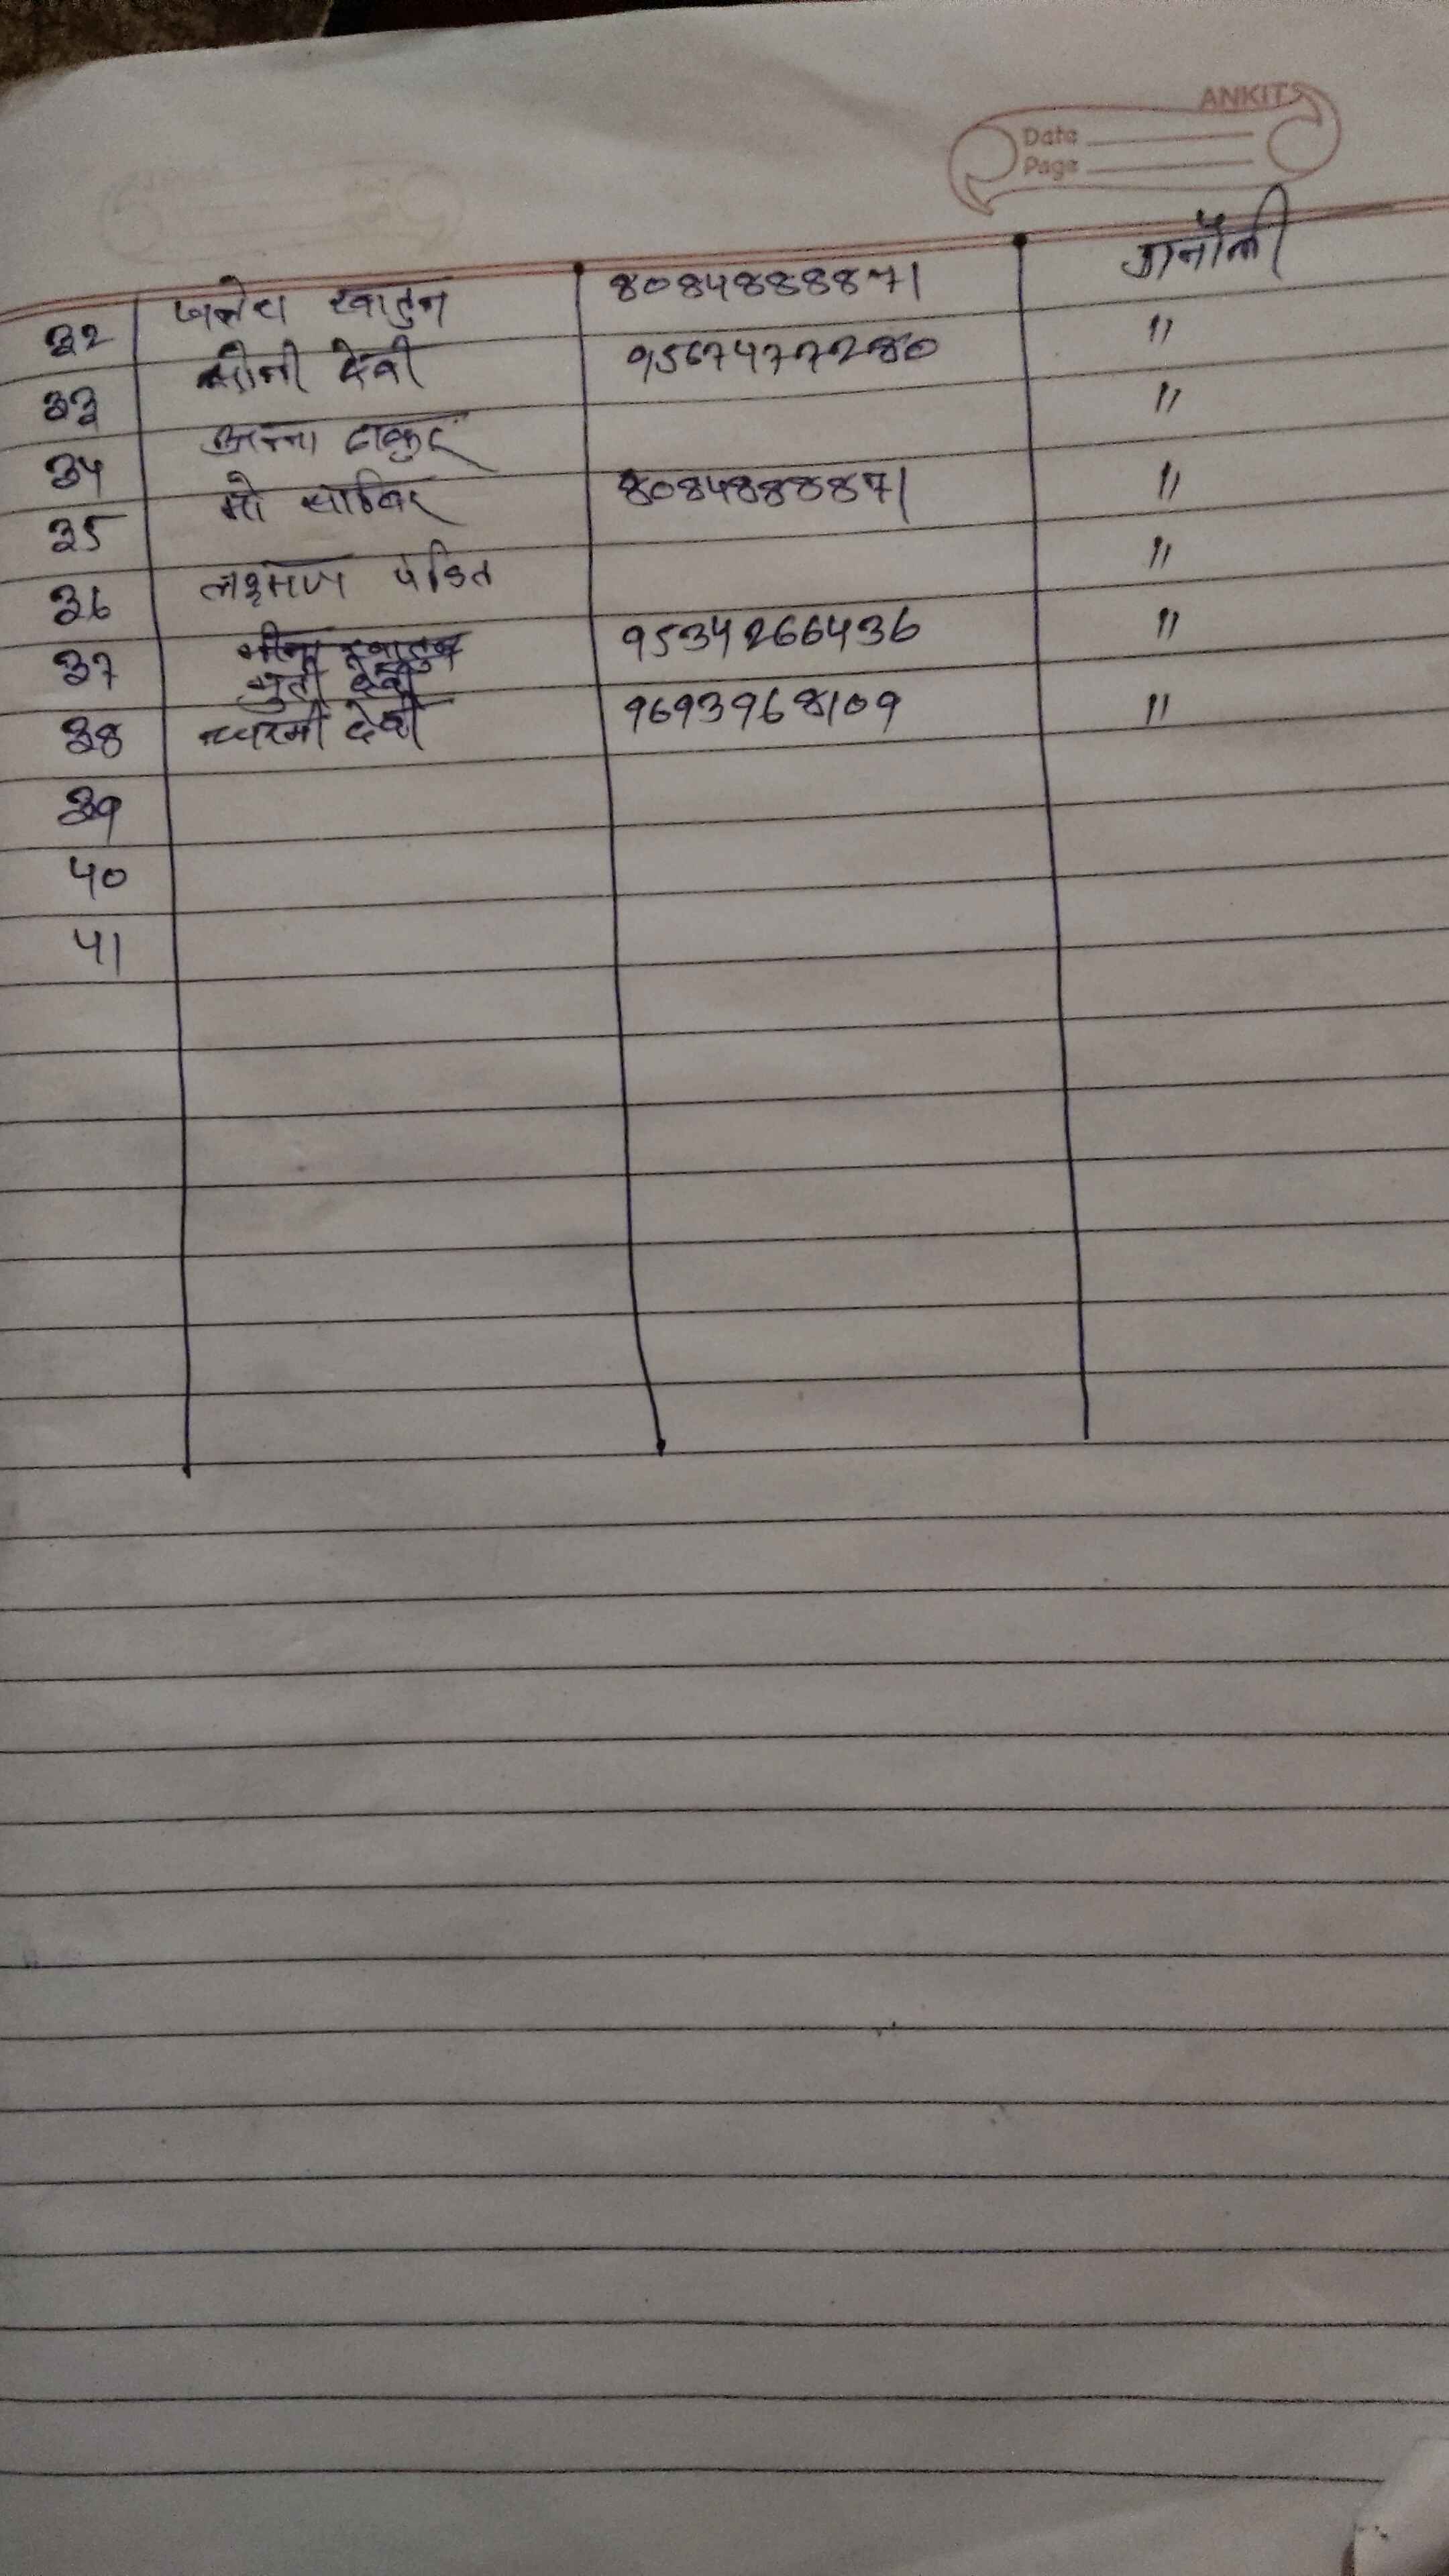 ANKITS
Date
Page
32 खातुन 8084888871
33 सोनी देवी 9567477280 "
34 अन्ना ठाकुर "
35 मो साबिर 8084888871 "
36 लक्ष्मण पंडित "
37 9534266436 "
देवी
38 देवी 9693968109 "
39
40
41